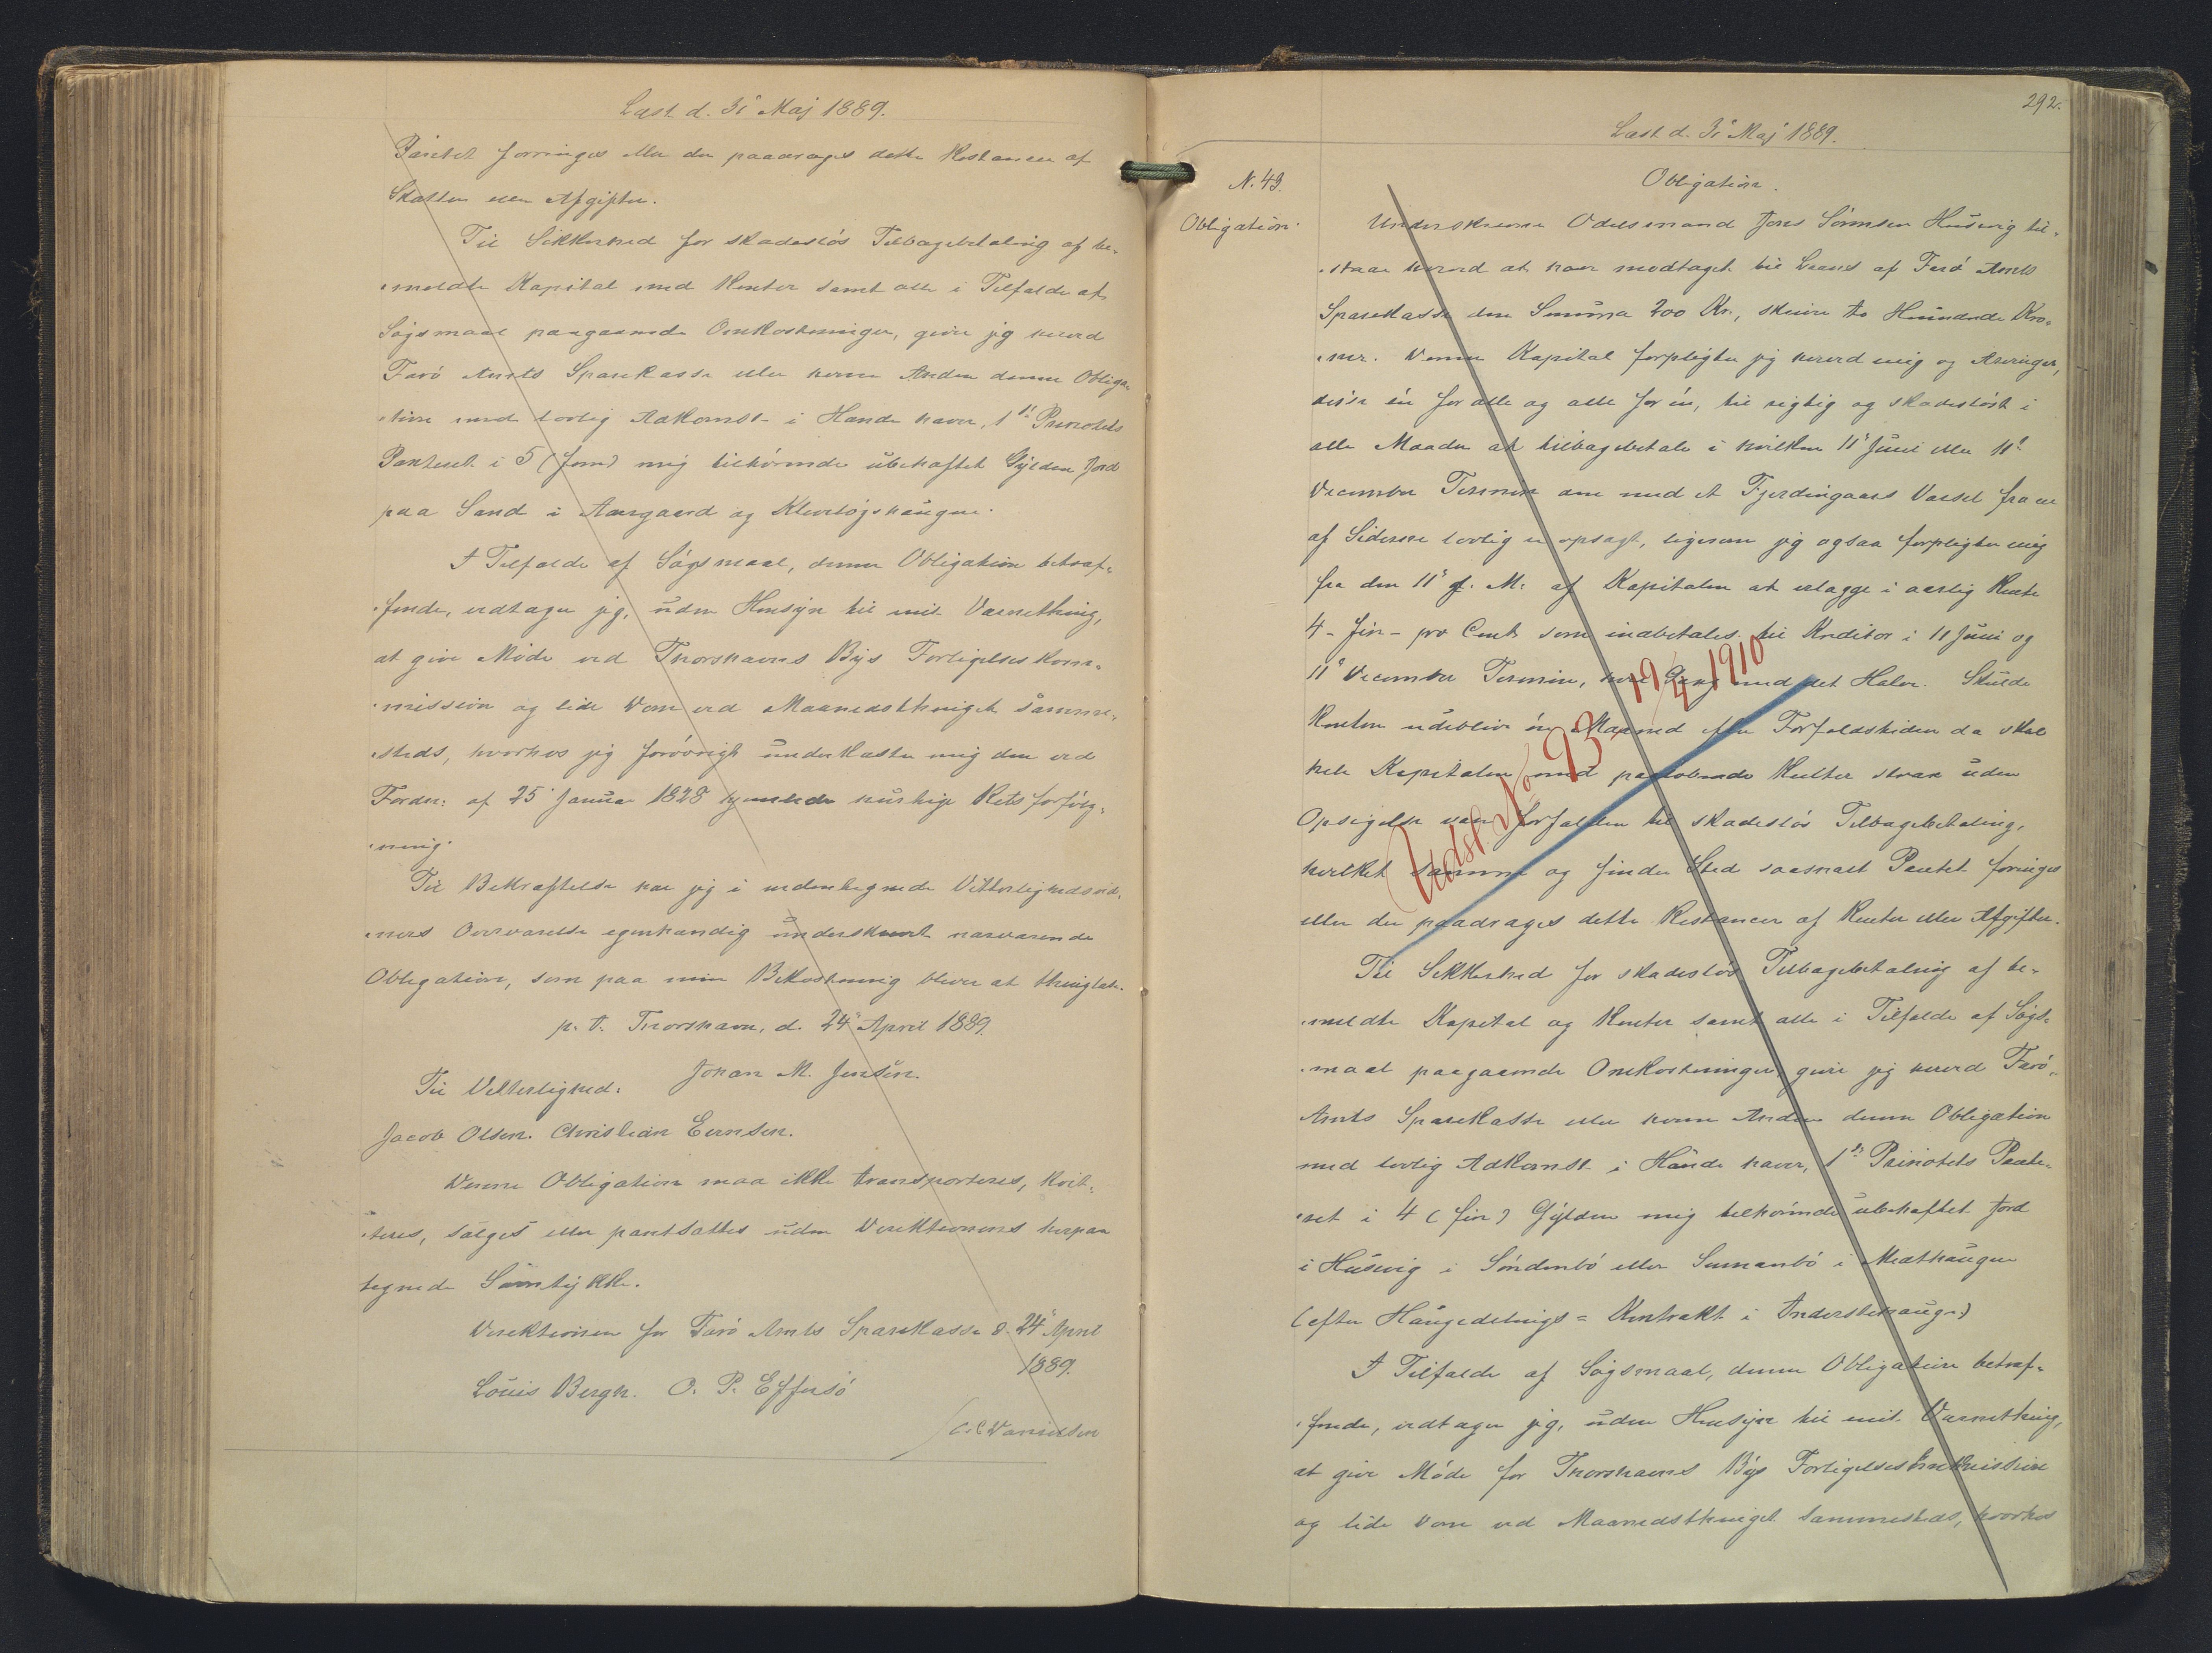 Læst d. 31' Maj 1889.
Pantet forringes eller der paadrages dette Restancer af
Skatter eller Afgifter.
Til Sikkerhed for skadeslös Tilbagebetaling af be-
meldte Kapital med Renter samt alle i Tilfælde af
Søgsmaal paagaaende Omkostninger, giver jeg herved
Færö Amts Sparekasse eller hvem Anden denne Obliga-
tion med lovlig Adkomst i Hænde haver, 1ste Prioritets
Panteret i 5 (fem) mig tilhörende übehæftet Gylden Jord
paa Sand i Aargaard og
I Tilfælde af Søgsmaal, denne Obligation betræf-
fende, vedtager jeg, üden Hensyn til mit Værnething,
at give Møde ved Thorshavns Byes Forligelses Kom-
mission og lide Dom ved Maanedsthinget samme-
steds, hvorhos jeg forövrigt ünderkaster mig den ved
Forordn: af 25' Januar 1828 hjemlede hurtige Retsforfölg-
ning.
Til Bekræftelse har jeg i undertegnede Vitterlighedsvid-
ners Overværelse egenhændig ünderskrevet nærværende
Obligation, som paa min Bekostning bliver at thinglæse.
p. t. Thorshavn, d. 24' April 1889.
Johan M. Jensen.
Til Vitterlighed:
Jacob Olsen. Christian
Denne Obligation maa ikke transporteres, kvit-
teres, sælges eller pantsættes üden Direktionens herpaa
tegnede Samtykke.
Direktionen for Færö Amts Sparekasse d. 24' April
1889.
Loüis Bergh. O. P. Effersö
/C. C. Danielsen
292.
Læst d. 31' Maj 1889.
N. 43.
Obligation.
Obligation.
Underskrevne Odelsmand Jones Sörensen Hüsevig til-
staar herved at have modtaget til Laans af Færö Amts
Sparekasse den Summa 200 Kr., skriver to Hundrede Kro-
ner. Denne Kapital forpligter jeg herved mig og Arvinger,
disse én for alle og alle for én, til rigtig og skadeslöst i
alle Maader at tilbagebetale i hvilken 11' Juni eller 11'
December Termin den med et Fjerdingaars Varsel fra en
af Siderne lovlig er opsagt, ligesom jeg ogsaa forpligter mig
fra den 11' f. M. af Kapitalen at erlægge i aarlig Rente
4 - fire - pro Cent som indbetales til Kreditor i 11 Juni og
11' December Termin, hver Gang med det Halve. Skulde
Renten udeblive én Maaned efter Forfaldstiden da skal
hele Kapitalen med paalöbende Renter strax uden
Opsigelse være forfalden til skadeslös Tilbagebetaling,
hvilket samme og finder Sted saasnart Pantet foringes
eller der paadrages dette Restancer af Renter eller Afgifter.
Udsl. No 93. 19/4 1910
Til Sikkerhed for skadeslös Tilbagebetaling af be-
meldte Kapital og Renter samt alle i Tilfælde af Søgs-
maal paagaaende Omkostninger, giver jeg herved Færö
Amts Sparekasse eller hvem Anden denne Obligation
med lovlig Adkomst i Hænde haver, 1ste Prioritets Pante-
ret i 4 (fire) Gylden mig tilhörende übehæftet Jord
i Hüsevig i Söndenbö eller Sumanbö i
(efter Haugedelings = Kontrakt i
I Tilfælde af Søgsmaal, denne Obligation betræf-
fende, vedtager jeg, üden Hensyn til mit Værnething,
at give Møde for Thorshavns Byes Forligelseskommission
og lide Dom ved Maanedsthinget sammesteds, hvorhos